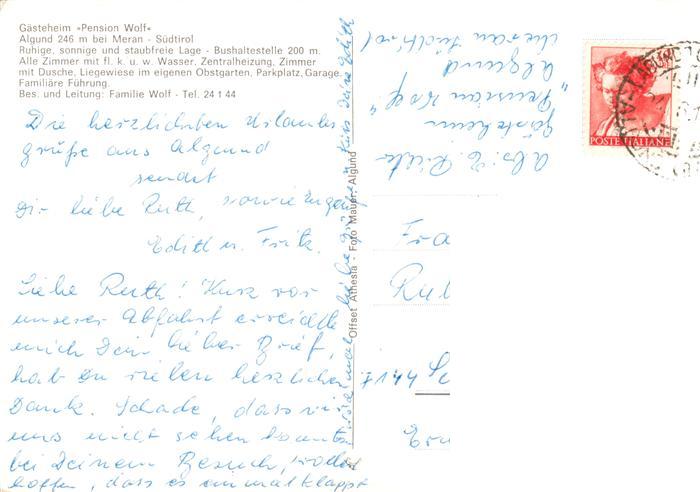 Gästeheim »Pension Wolf«
Algund 246 m bei Meran - Südtirol
Ruhige, sonnige und staubfreie Lage - Bushaltestelle 200 m.
Alle Zimmer mit fl. k. u. w. Wasser, Zentralheizung, Zimmer
mit Dusche, Liegewiese im eigenen Obstgarten, Parkplatz, Garage.
Familiäre Führung.
Bes. und Leitung: Familie Wolf - Tel. 24 1 44
Die herzlichsten Urlaubs
grüße aus Algund
sendet
Dir liebe Ruth, sowie Eugen
Edith u. Fritz.
Liebe Ruth! Kurz vor
unserer Abfahrt erreichte
mich Dein lieber Brief,
hab Du vielen herzlichen
Dank. Schade, dass wir
uns nicht sehen konnten
bei Deinem Besuch,
hoffen, dass es einmal klappt
liebe Grüße Edith
Offset Athesia - Foto Mauer, Algund
Abs:
Gästeheim
"Pension Wolf"
Algund
Meran Südtirol
POSTE ITALIANE